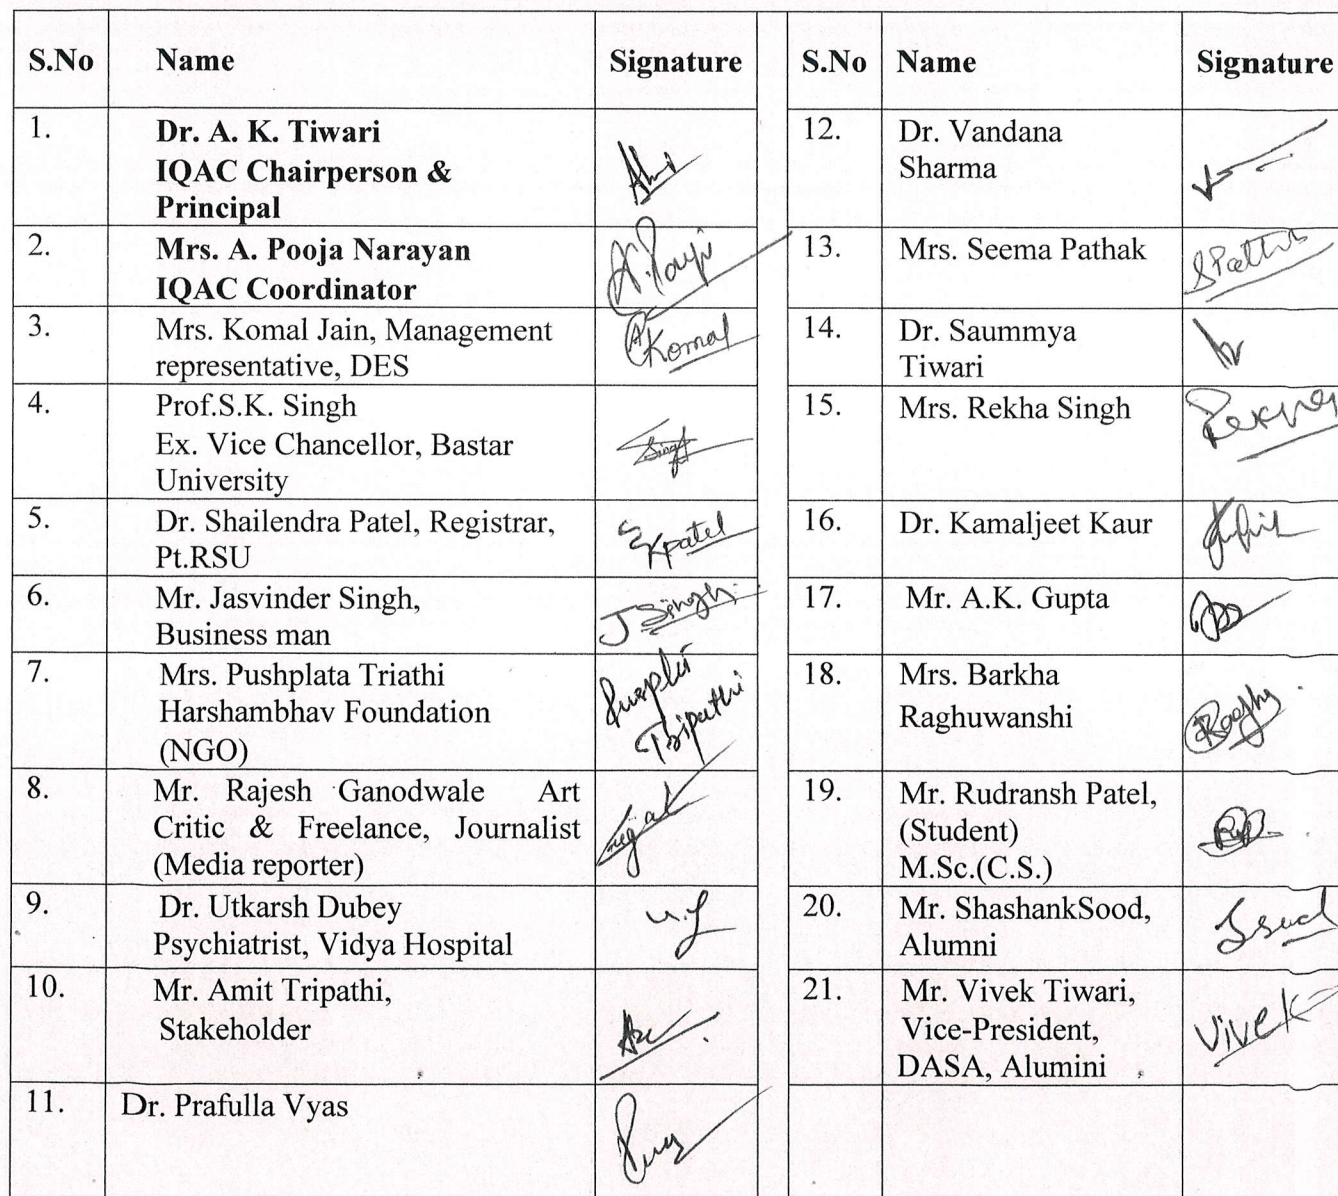 S.No Name Signature
1. Dr. A. K. Tiwari
IQAC Chairperson &
Principal
2. Mrs. A. Pooja Narayan
IQAC Coordinator
A. Pooja
3. Mrs. Komal Jain, Management
representative, DES
Komal
4. Prof.S.K. Singh
Ex. Vice Chancellor, Bastar
University
Singh
5. Dr. Shailendra Patel, Registrar,
Pt.RSU
SKpatel
6. Mr. Jasvinder Singh,
Business man
J Singh
7. Mrs. Pushplata Triathi
Harshambhav Foundation
(NGO)
Tripathi
8. Mr. Rajesh Ganodwale Art
Critic & Freelance, Journalist
(Media reporter)
9. Dr. Utkarsh Dubey
Psychiatrist, Vidya Hospital
10. Mr. Amit Tripathi,
Stakeholder
11. Dr. Prafulla Vyas
S.No Name Signature
12. Dr. Vandana
Sharma
13. Mrs. Seema Pathak
SPathak
14. Dr. Saummya
Tiwari
15. Mrs. Rekha Singh
16. Dr. Kamaljeet Kaur
17. Mr. A.K. Gupta
18. Mrs. Barkha
Raghuwanshi
19. Mr. Rudransh Patel,
(Student)
M.Sc.(C.S.)
20. Mr. ShashankSood,
Alumni
21. Mr. Vivek Tiwari,
Vice-President,
DASA, Alumini
Vivek